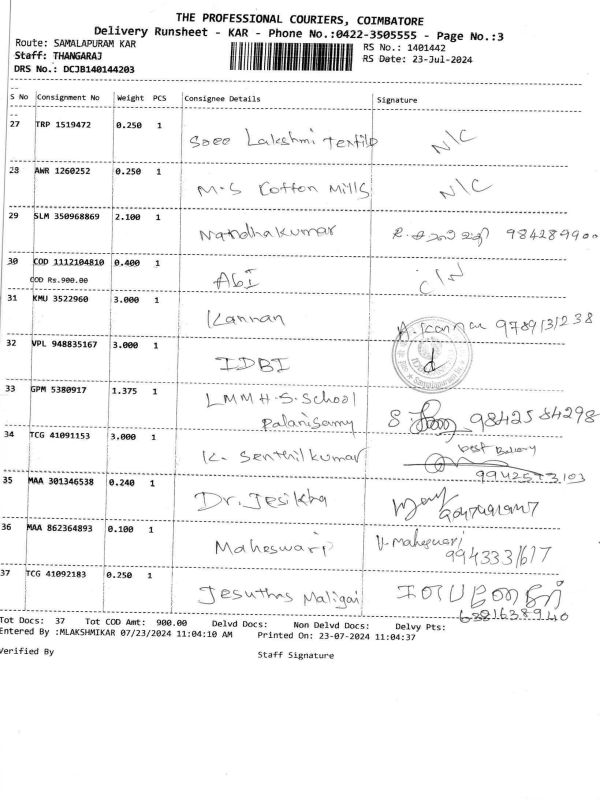 THE PROFESSIONAL COURIERS, COIMBATORE
Delivery Runsheet - KAR - Phone No.:0422-3505555 - Page No.:3
Route: SAMALAPURAM KAR
RS No.: 1401442
Staff: THANGARAJ
RS Date: 23-Jul-2024
DRS No.: DCJB140144203
S No Consignment No Weight PCS Consignee Details Signature
27 TRP 1519472 0.250 1
Sree Lakshmi Textile N/C
28 AWR 1260252 0.250 1
M.S Cotton Mills N/C
29 SLM 350968869 2.100 1
Nandhakumar 984289900
30 COD 1112104810 0.400 1
COD Rs.900.00
Abi
31 KMU 3522960 3.000 1
Kannan A. Kannan 9789131238
32 VPL 948835167 3.000 1
IDBI
33 GPM 5380917 1.375 1
LMM H.S. School
Palanisamy 9842584298
34 TCG 41091153 3.000 1
best Bakery
K. Senthilkumar
9942573103
35 MAA 301346538 0.240 1
Dr. Jesikha
36 MAA 862364893 0.100 1
Maheswari V. Maheswari
9943331677
37 TCG 41092183 0.250 1
Jesuthas Maligai
6381638940
Tot Docs: 37 Tot COD Amt: 900.00 Delvd Docs: Non Delvd Docs: Delvy Pts:
Entered By :MLAKSHMIKAR 07/23/2024 11:04:10 AM Printed On: 23-07-2024 11:04:37
Verified By
Staff Signature